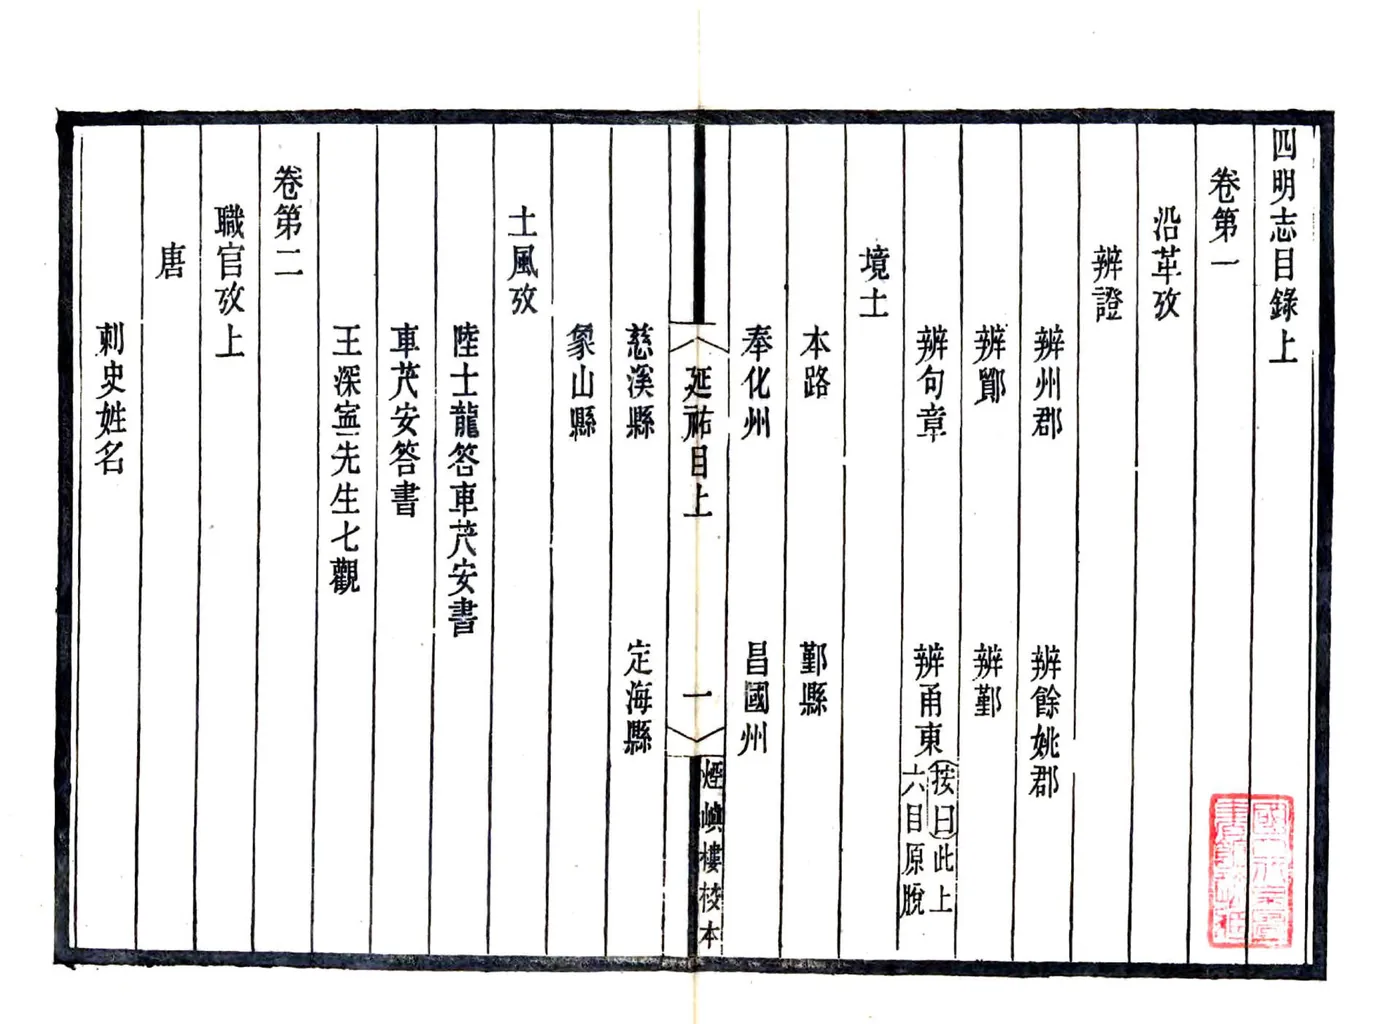 四明志目錄上
卷第一
沿革攷
辨證
辨州郡 辨餘姚郡
辨鄮 辨鄞
辨句章 辨甬東 按曰此上六目原脫
境土
本路 鄞縣
奉化州 昌國州
延祐目上 一 煙嶼樓校本
慈溪縣 定海縣
象山縣
土風攷
陸士龍答車茂安書
車茂安答書
王深寧先生七觀
卷第二
職官攷上
唐
刺史姓名